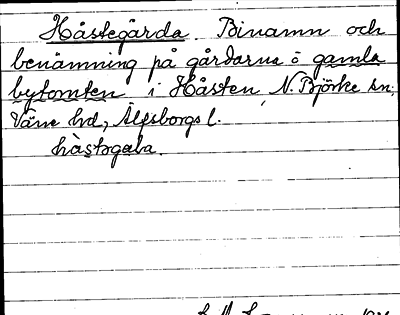 Håstegårda. Binamn och
benämning på gårdarna å gamla
bytomten i Håsten, N. Björke sn,
Väne hd, Älfsborgs l.
hàstəgaba.